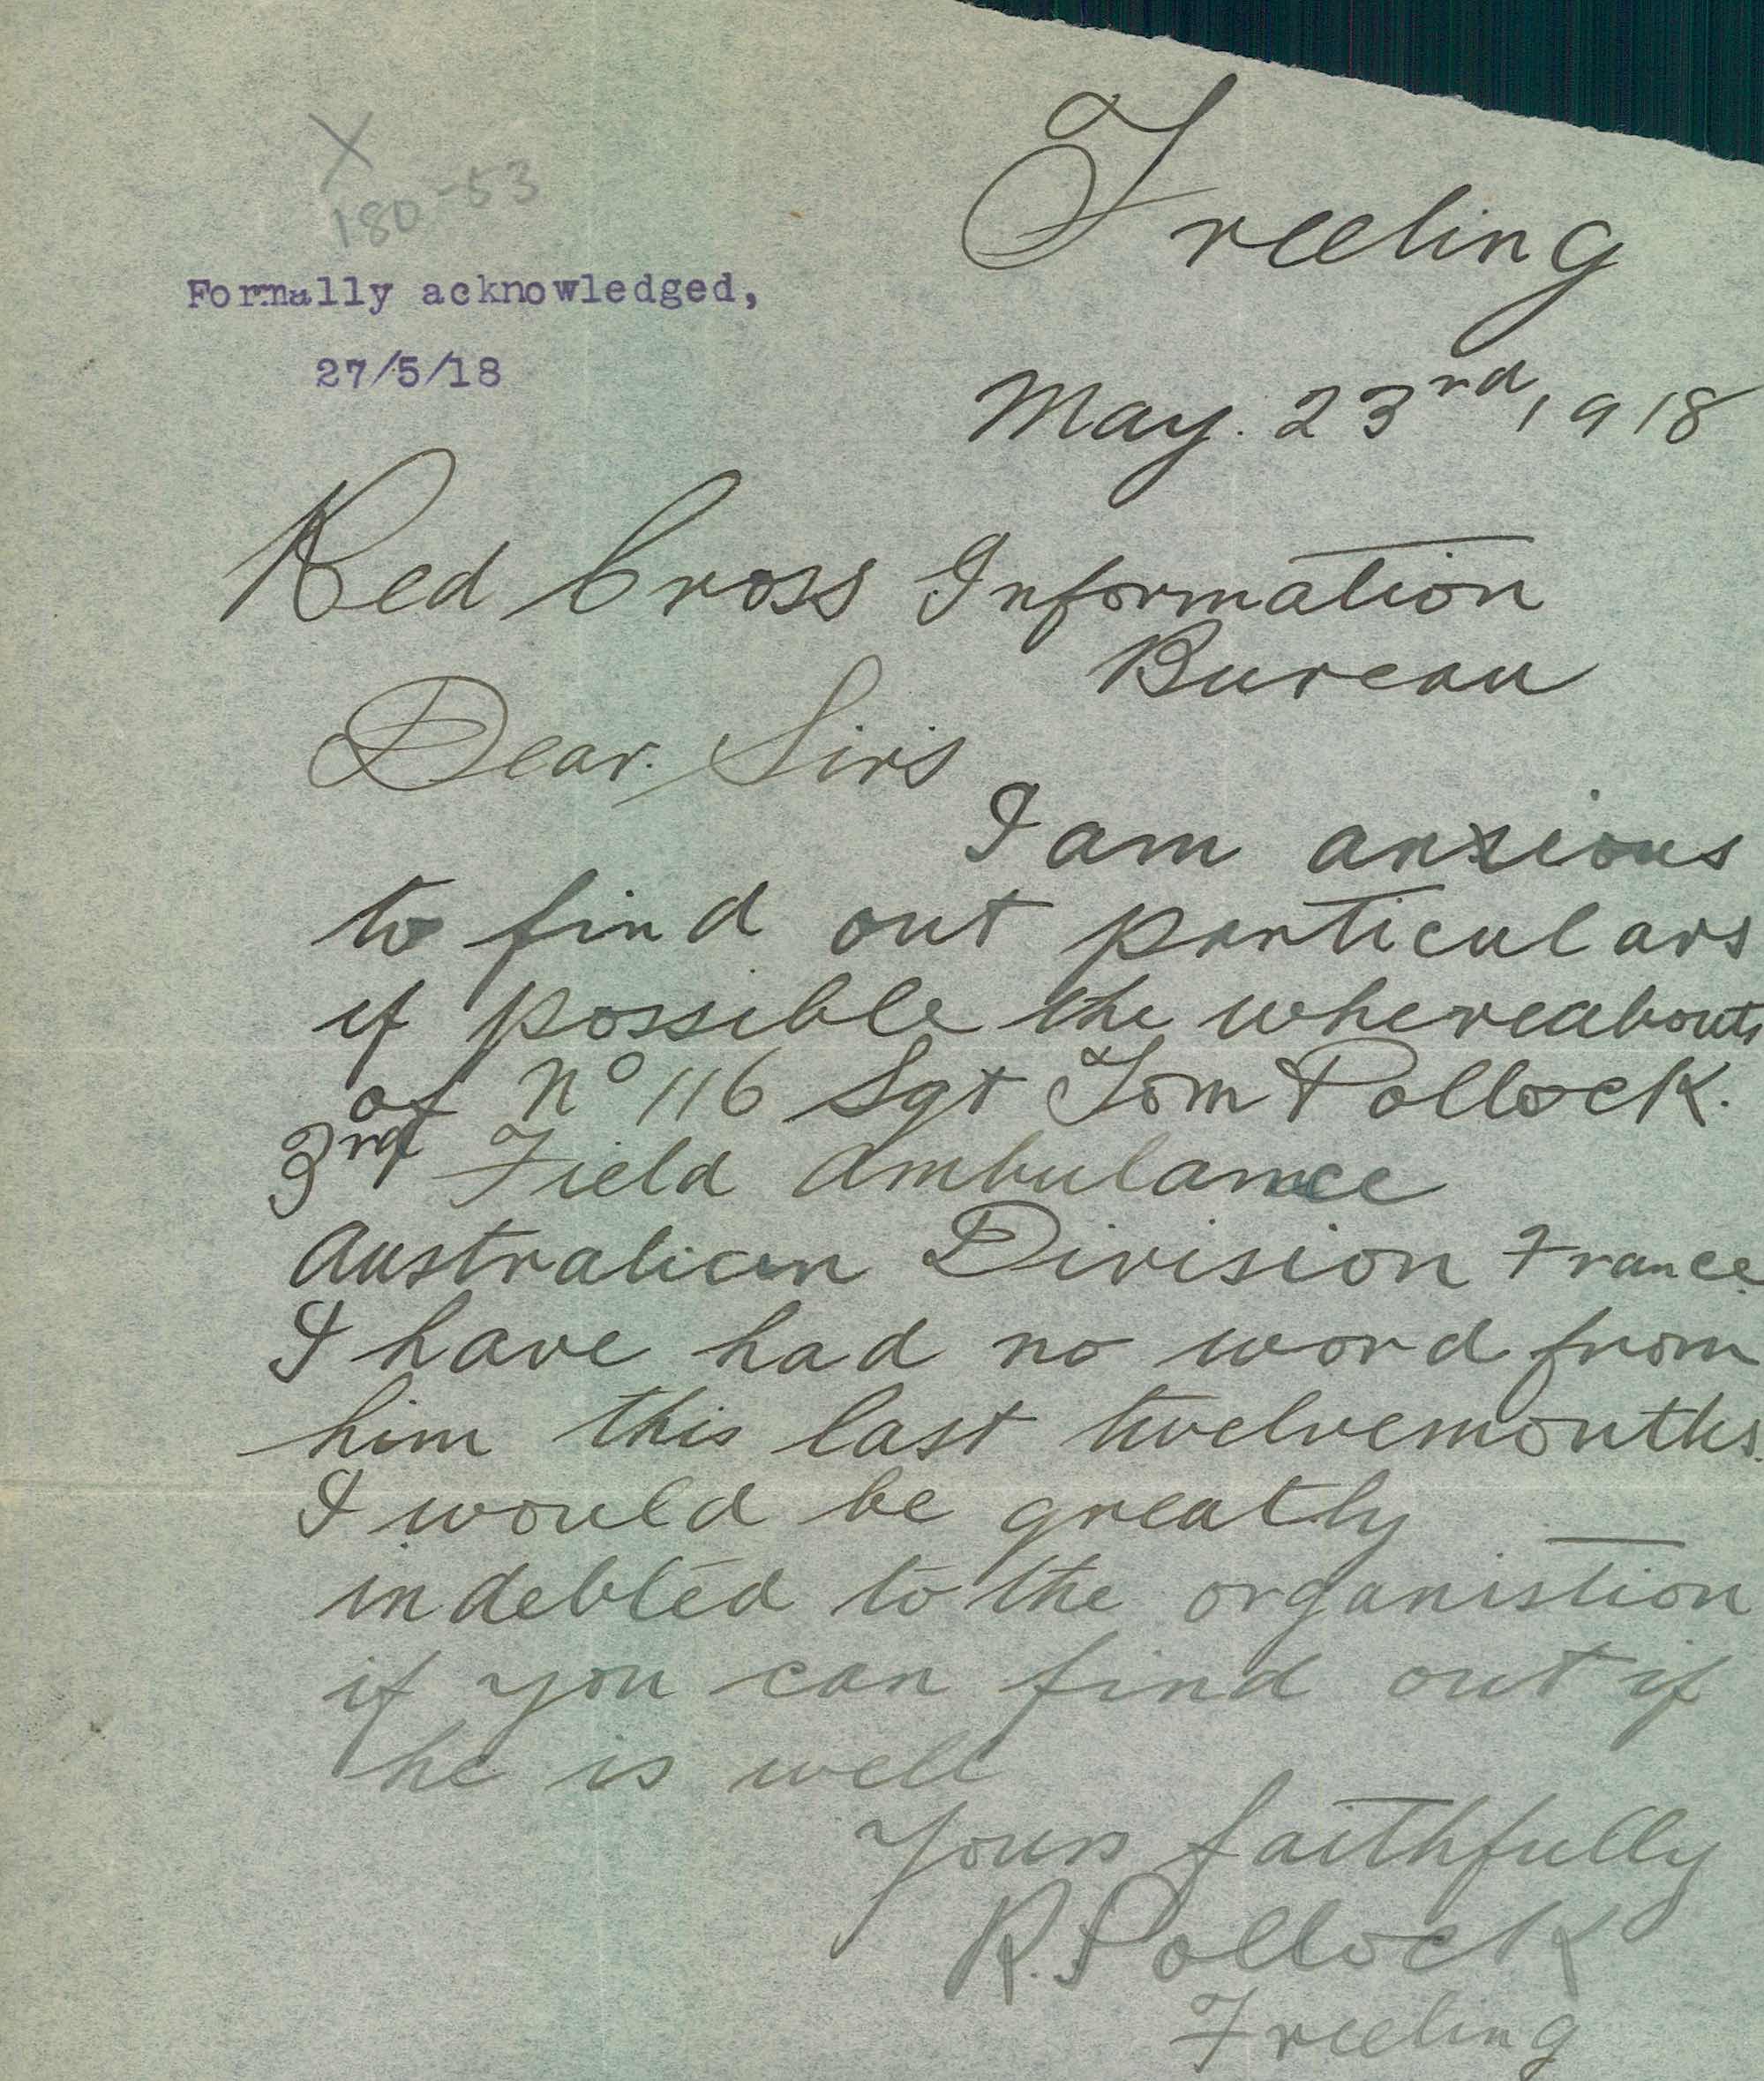 X
180-53
Formally acknowledged,
27/5/18
Freeling
May. 23rd, 1918
Red Cross Information
Bureau
Dear. Sirs
I am anxious
to find out particulars
if possible the whereabouts
of No 116 Sgt Tom Pollock.
3rd Field Ambulance
Australian Division France
I have had no word from
him this last twelvemonths.
I would be greatly
indebted to the organistion
if you can find out if
he is well
Yours faithfully
R. Pollock
Freeling